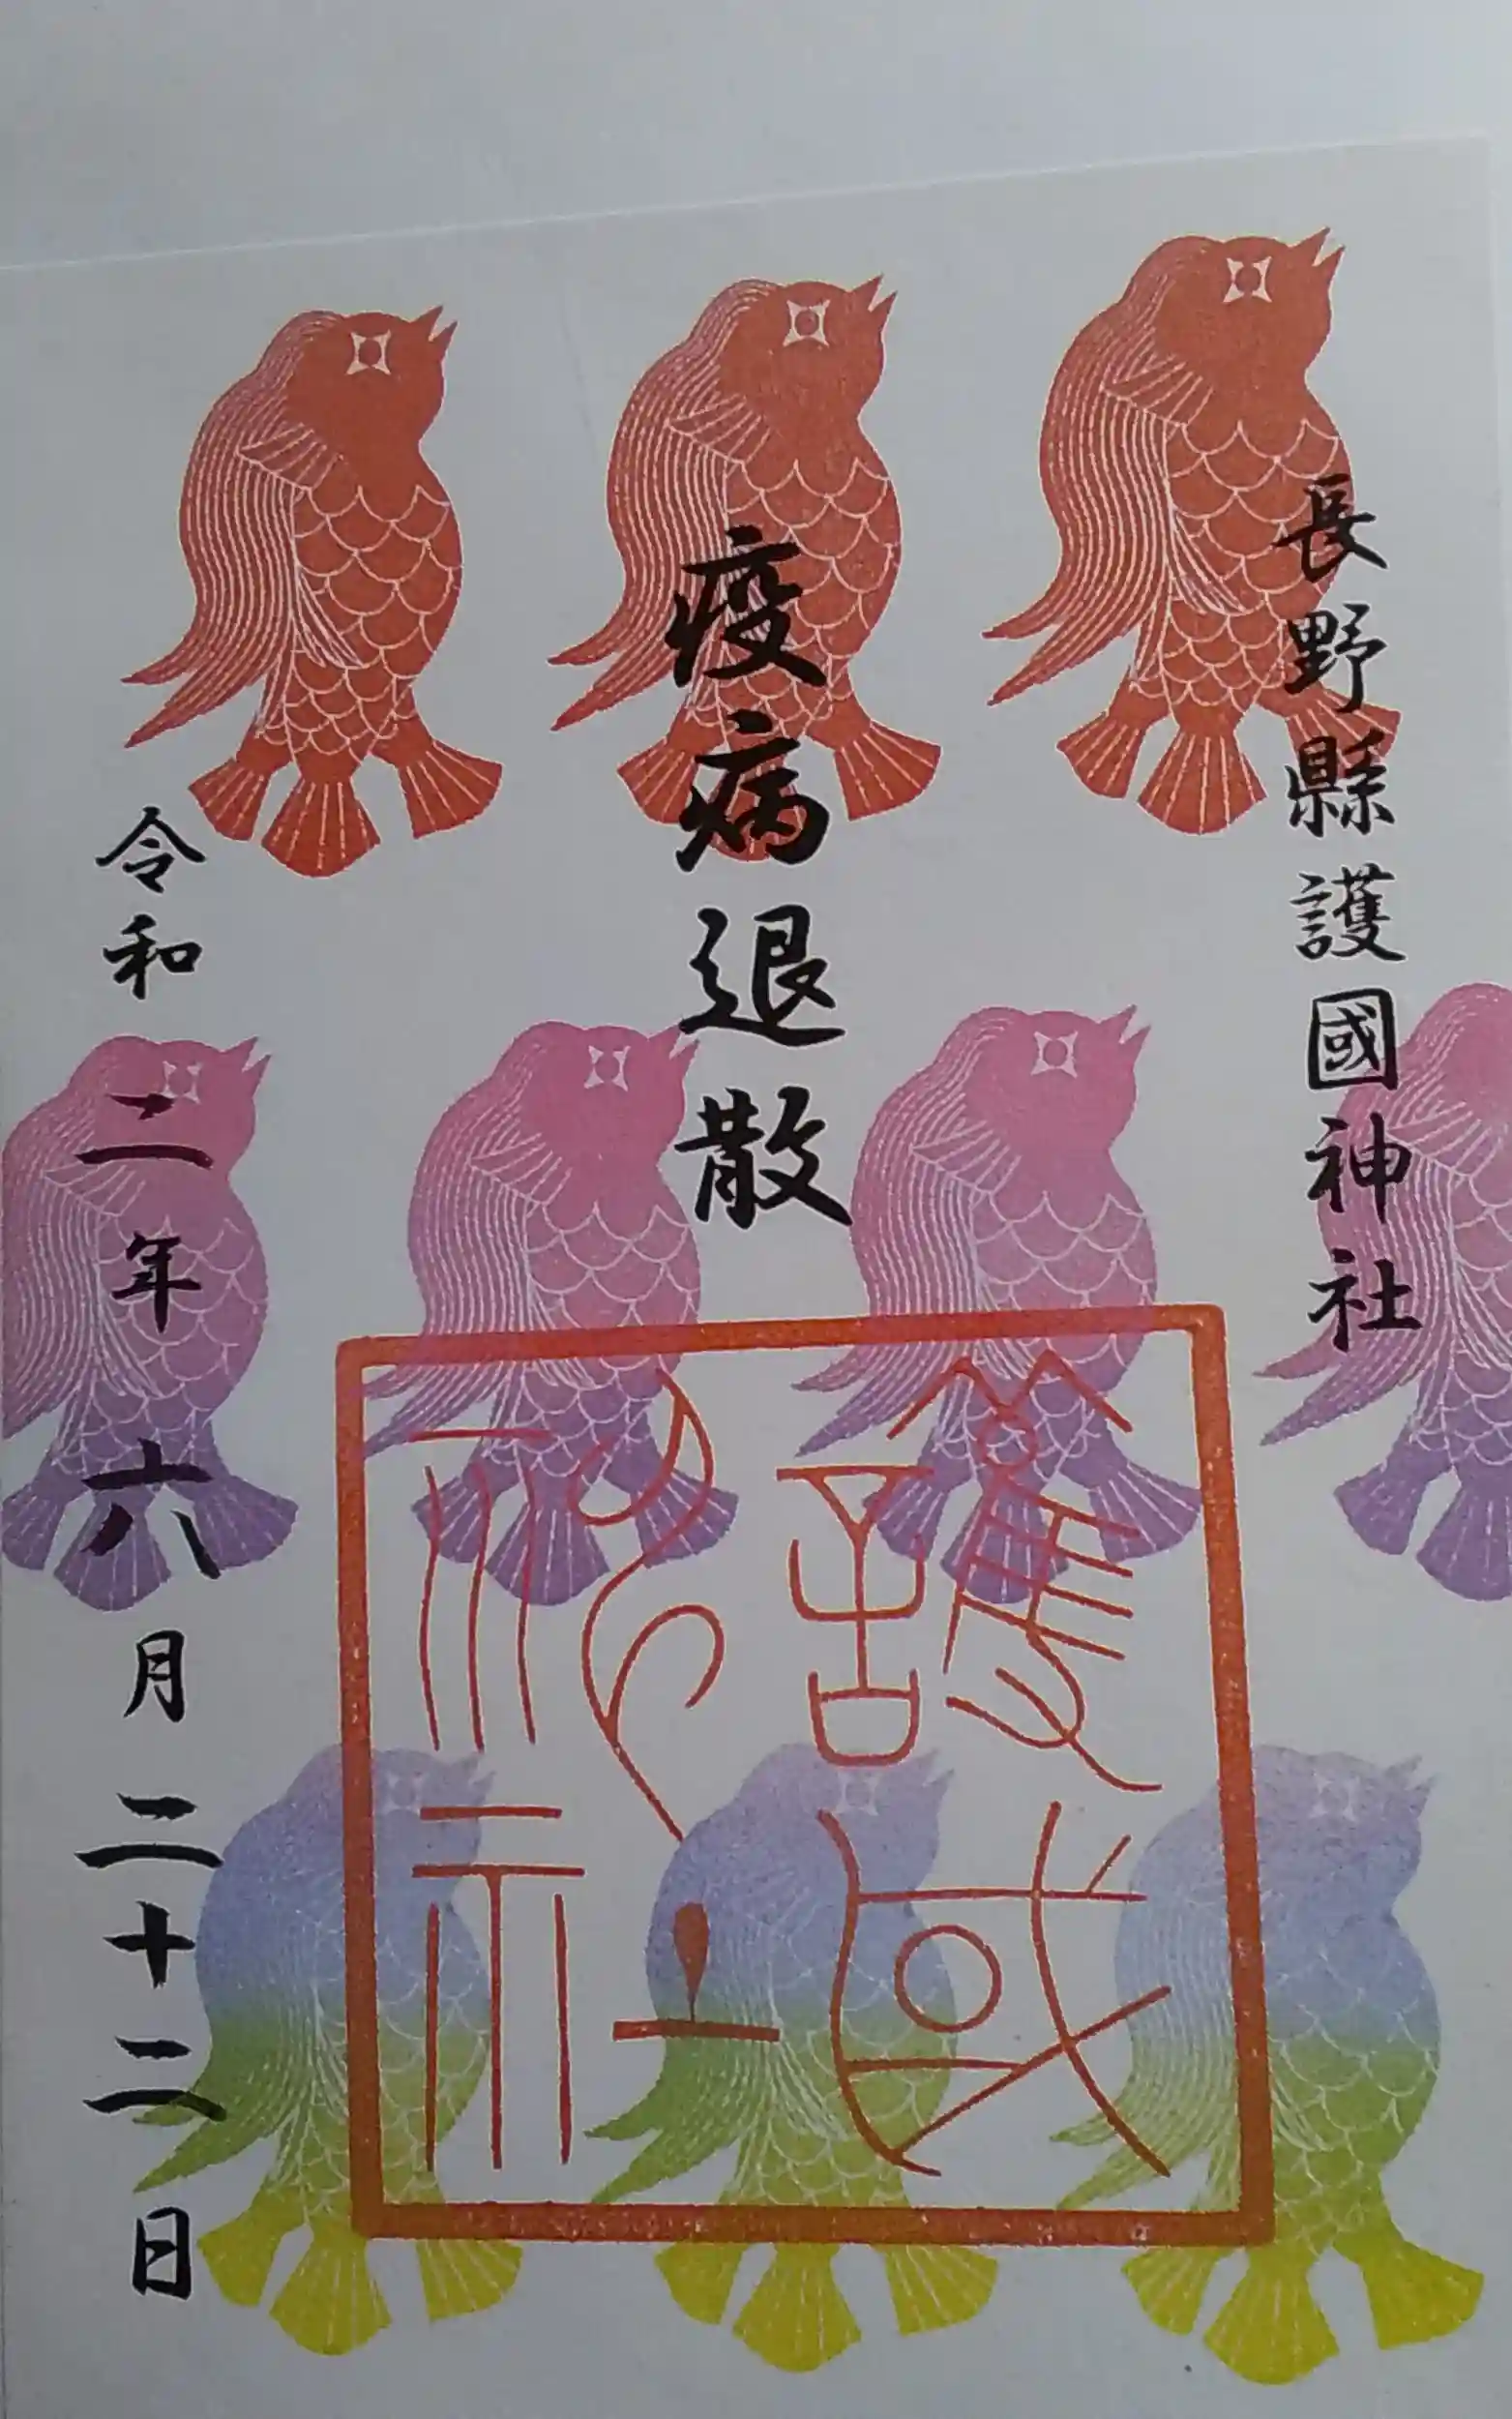 長野縣護國神社
疫病退散
護國
神社
令和二年六月二十二日